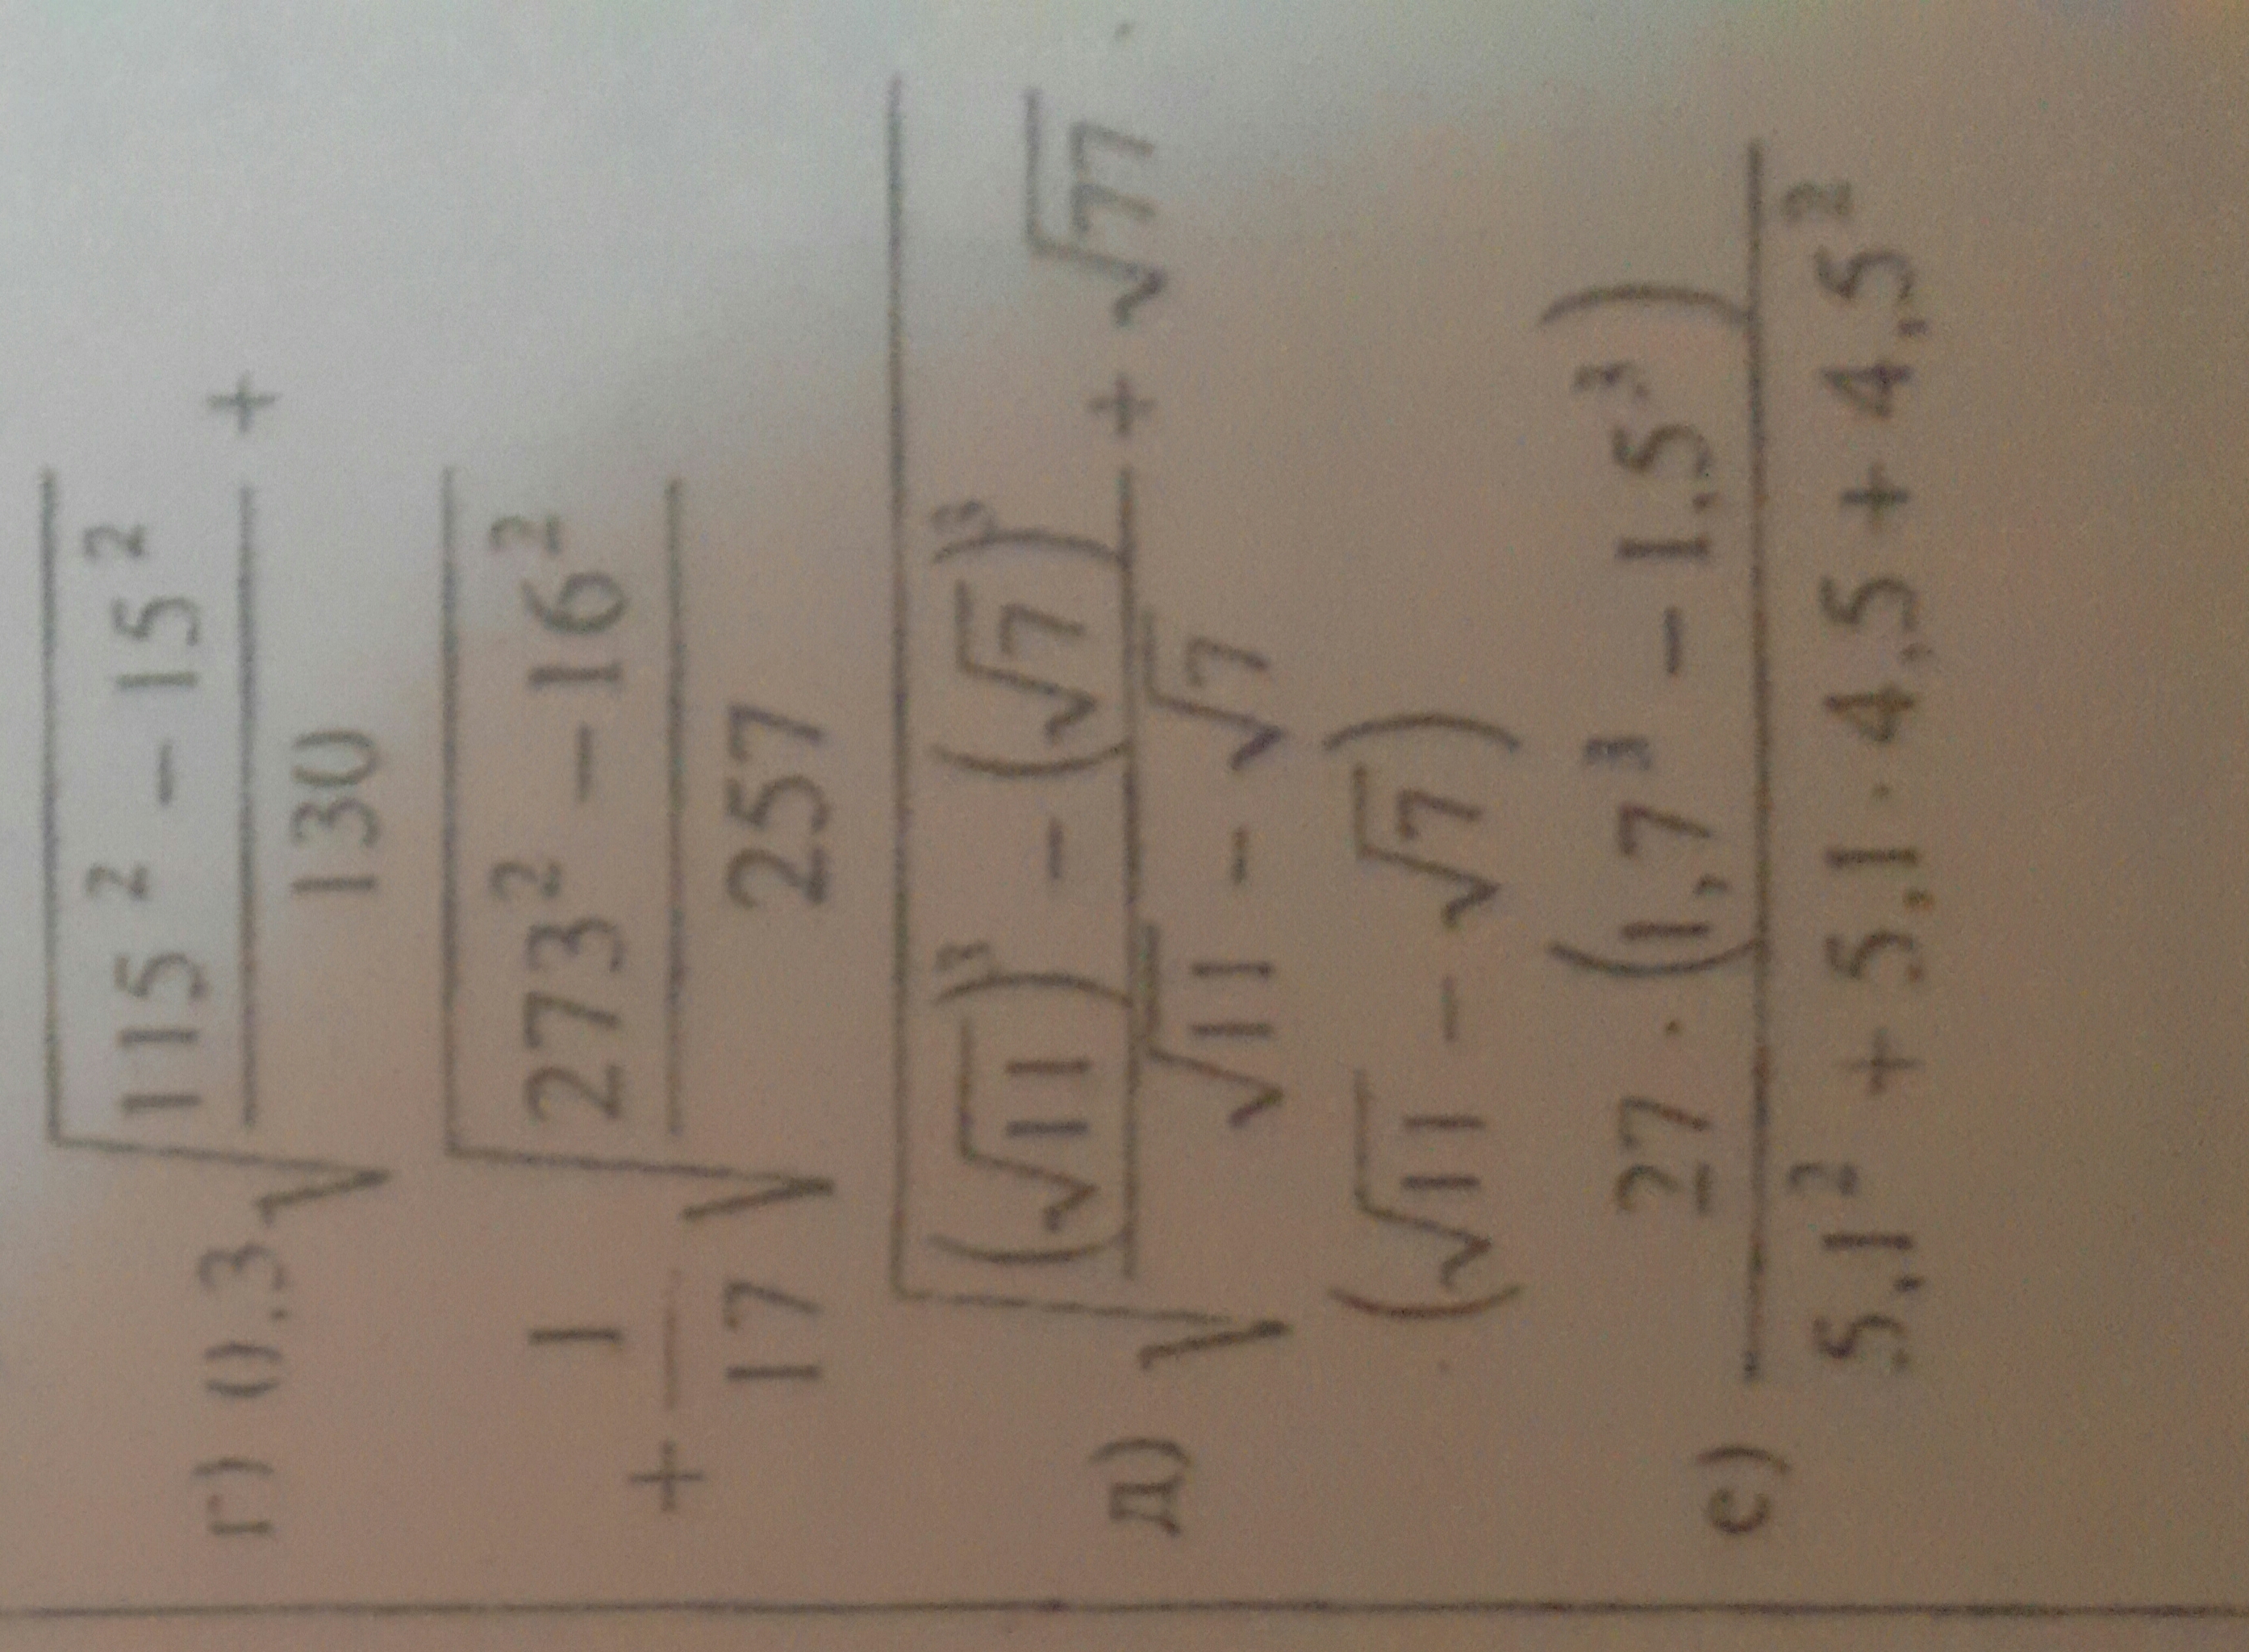 г) 0,3√((115² − 15²)/130) +
+ 1/17 √((273² − 16²)/257)
д) √(((√11)³ − (√7)³)/(√11 − √7) + √77) ·
· (√11 − √7)
е) (27 · (1,7³ − 1,5³))/(5,1² + 5,1 · 4,5 + 4,5²)